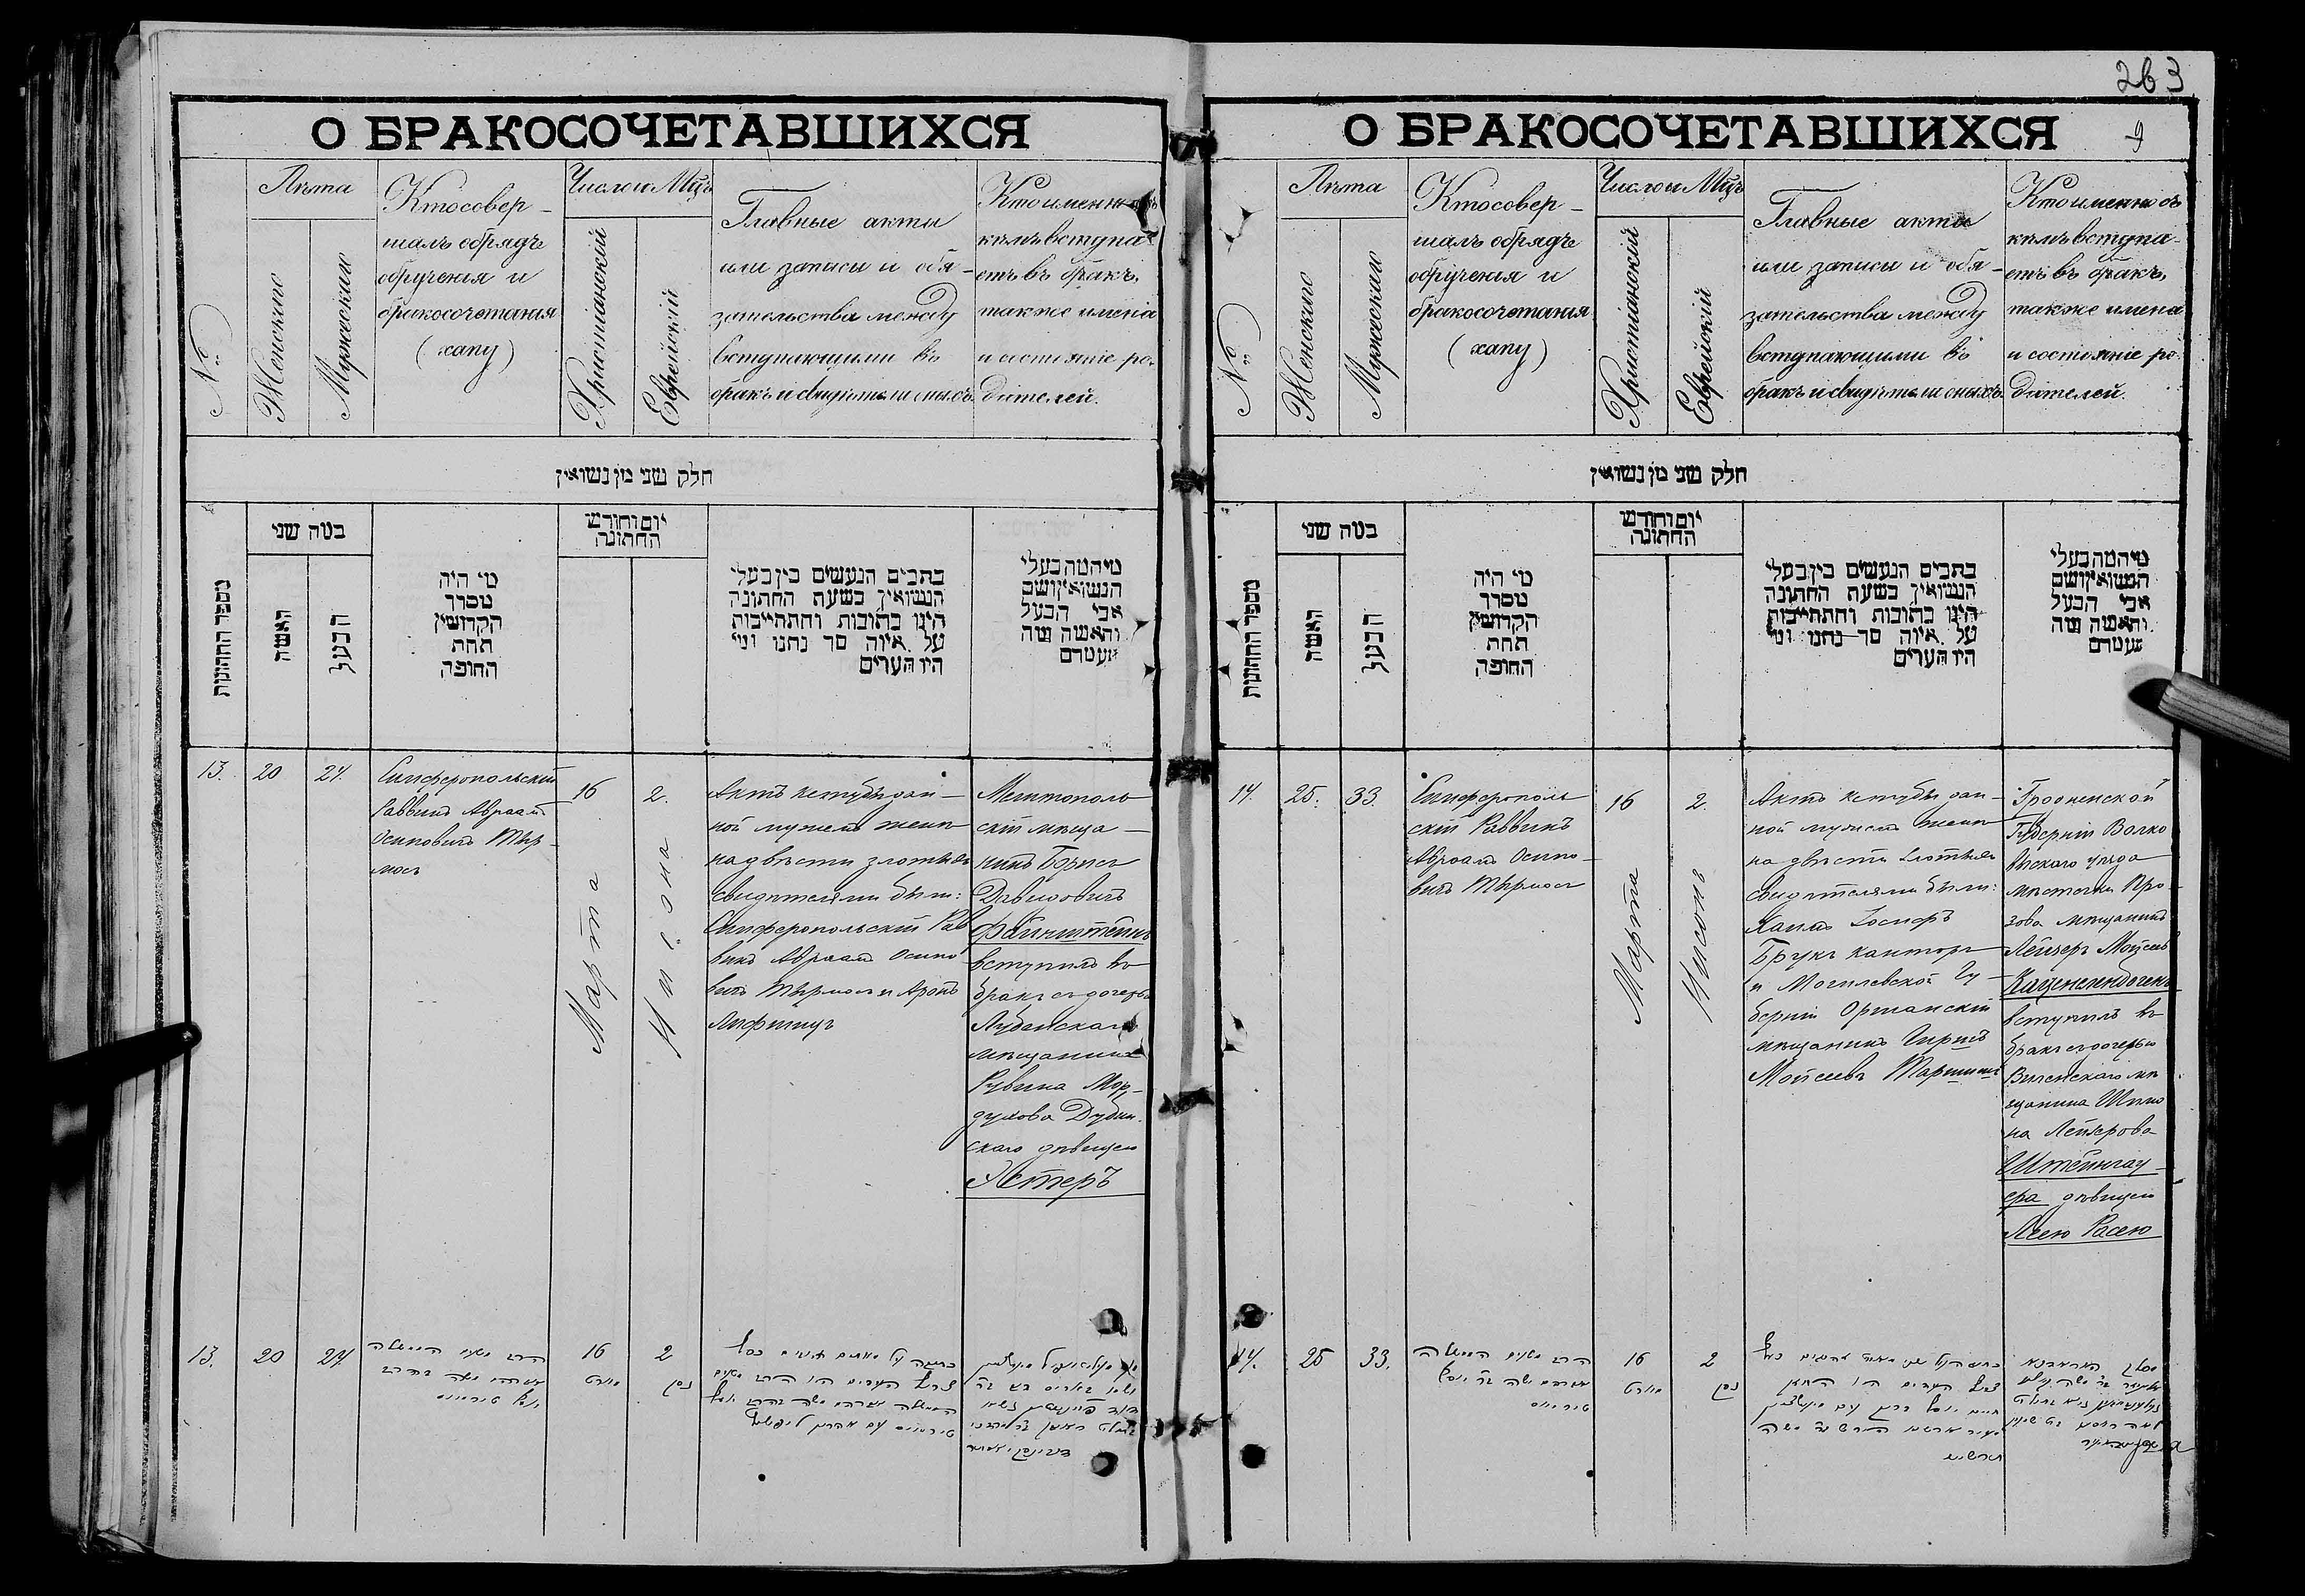 263
О БРАКОСОЧЕТАВШИХСЯ
№
Лѣта
Женскаго
Мужескаго
Ктосовер-
шалъ обрядъ
обрученія и
бракосочетания
(хапу)
Число и Мцъ
Христіанскій
Еврейскій
Главные акты
или записи и обя-
зательства между
вступающими въ
бракъ и свидѣтели оныхъ.
Кто именно
кѣмъ вступа-
етъ въ бракъ,
также имена
и состояніе ро-
дителей.
חלק שני מן נשואין
מספר החתונות
כמה שני
האשה
הבעל
מי היה
מסדר
הקדושין
תחת
החופה
יום וחודש
החתונה
כתבים הנעשים בין בעלי
הנשואין בשעת החתונה
היינו כתובות והתחייבות
על איזה סך נתנו ומי
היו העדים
מי המה בעלי
הנשואין ושם
אבי הבעל
והאשה ומה
מעמדם
13.
20
27.
Симферопольскій
Раввинъ Авраамъ
Осиповичъ Тыр-
мосъ
16
Марта
2.
Нисона
Актъ кетубы дан-
ной мужемъ женѣ
на двѣсти злотыхъ
свидѣтелями были:
Симферопольскій Рав
винъ Авраамъ Осипо
вичъ Тырмосъ и Аронъ
Лифшицъ
Мелитополь
скій мѣща-
нинъ Борисъ
Давидовичъ
Файнштейнъ
вступилъ въ
бракъ съ дочерью
Лубенскаго
мѣщанина
Рувина Мор-
духова Дубин-
скаго дѣвицею
Эстеръ
13.
20
27
הרב מטעם הממשלה
אברהם משה בהרב
יוסף טירמוס
16
מארט
2
ניסן
О БРАКОСОЧЕТАВШИХСЯ
9
№
Лѣта
Женскаго
Мужескаго
Ктосовер-
шалъ обрядъ
обрученія и
бракосочетания
(хапу)
Число и Мцъ
Христіанскій
Еврейскій
Главные акты
или записи и обя-
зательства между
вступающими въ
бракъ и свидѣтели оныхъ.
Кто именно съ
кѣмъ вступа-
етъ въ бракъ,
также имена
и состояніе ро-
дителей.
חלק שני מן נשואין
מספר החתונות
כמה שני
האשה
הבעל
מי היה
מסדר
הקדושין
תחת
החופה
יום וחודש
החתונה
כתבים הנעשים בין בעלי
הנשואין בשעת החתונה
היינו כתובות והתחייבות
על איזה סך נתנו ומי
היו העדים
מי המה בעלי
הנשואין ושם
אבי הבעל
והאשה ומה
מעמדם
14.
25.
33.
Симферополь
скій Раввинъ
Авраамъ Осипо-
вичъ Тырмосъ
16
Марта
2.
Нисонъ
Актъ кетубы дан-
ной мужемъ женѣ
на двѣсти злотыхъ
свидѣтелями были:
Хаимъ Іосифъ
Брукъ канторъ
и Могилевской Гу-
берніи Оршанскій
мѣщанинъ Гиршъ
Мойсеевъ
Гродненской
Губерніи Волко
выскаго уѣзда
мѣстечка Про-
зова мѣщанинъ
Лейзеръ Мойсеевъ
Каценеленбогенъ
вступилъ въ
бракъ съ дочерью
Виленскаго мѣ
щанина Шимо
на Лейзерова
дѣвицею
Лею Расею
14.
25
33.
הרב מטעם הממשלה
אברהם משה בר יוסף
טירמוס
16
מארט
2
ניסן